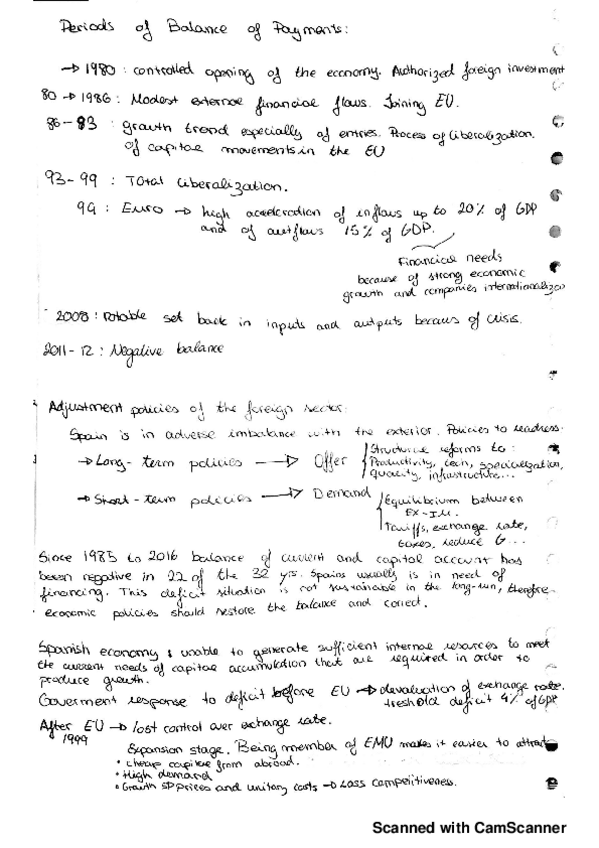 Periods of Balance of Payments:
→ 1980: controlled opening of the economy. Authorized foreign investment
80 → 1986: Modest external financial flows. Joining EU.
86-93: growth trend especially of entries. Process of liberalization
of capital movements in the EU
93-99: Total liberalization.
99: Euro → high acceleration of inflows up to 20% of GDP
and of outflows 15% of GDP.
Financial needs
because of strong economic
growth and companies
2008: notable set back in inputs and outputs becaus of crisis.
2011-12: Negative balance
Adjustment policies of the foreign sector:
Spain is in adverse imbalance with the exterior. Policies to readress:
→ Long-term policies → Offer
Structural reforms to:
Productivity, tech, specialization,
quality, infrastructure...
→ Short-term policies → Demand
Equilibrium between
EX-IM.
Tariffs, exchange rate,
taxes, reduce G...
Since 1985 to 2016 balance of current and capital account has
been negative in 22 of the 32 yrs. Spains usually is in need of
financing. This deficit situation is not sustainable in the long-run, therefore
economic policies should restore the balance and correct.
Spanish economy is unable to generate sufficient internal resources to meet
the current needs of capital accumulation that are required in order to
produce growth.
Goverment response to deficit before EU → devaluation of exchange rate.
treshold deficit 4% of GDP
After EU → lost control over exchange rate.
1999
Expansion stage. Being member of EMU makes it easier to attract
• cheap capital from abroad.
• High demand
• Growth SP prices and unitary costs → Loss competitiveness.
Scanned with CamScanner